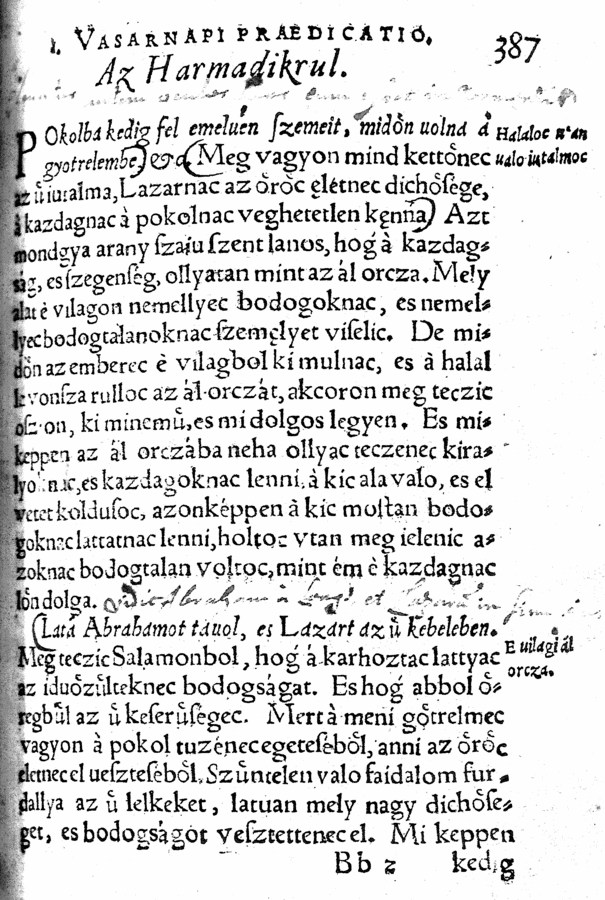 1. VASARNAPI PRAEDICATIO. 387
Az Harmadikrul.
POkolba kedig fel emeluén ſzemeit, midőn uolna à
gyotrelembē) &c.( Meg vagyon mind kettőnec
az ů iutalma, Lazarnac az őrőc ęlétnec dichőſęge,
à kazdagnac à pokolnac veghetetlen kęnńa) Azt
mondgya arany ſzaiu ſzent Ianos, hog à kazdag⸗
ság, es ſzegenſég, ollyatan mint az ál orcza. Mely
alat è vilagon nemellyec bodogoknac, es nemel⸗
lyec bodogtalanoknac ſzemęlyet viſelic. De mi⸗
dőn az emberec è vilagbol ki mulnac, es à halal
le vonſza rulloc az ál orczát, akcoron meg teczic
oſzon, ki minemů, es mi dolgos legyen. Es mi⸗
keppen az ál orczába neha ollyac teczenec kira⸗
lyoknac, es kazdagoknac lenni, à kic ala valo, es el
vetet kolduſoc, azonképpen à kic moſtan bodo⸗
goknac lattatnac lenni, holtoc vtan meg ielenic a⸗
zoknac bodogtalan voltoc, mint ém è kazdagnac
lőn dolga.
(Latá Abrahamot táuol, es Lazárt az ů kebeleben.
Meg teczic Salamonbol, hog á karhoztac lattyac
az iduőzůlteknec bodogságat. Es hog abbol ő⸗
regbůl az ů keſerůſégec. Mert à meni gőtrelmec
vagyon à pokol tuzénec egeteſéből, anni az őrőc
eletnec el ueſzteſéből. Szůntelen valo faidalom fur⸗
dallya az ů lelkeket, latuan mely nagy dichőſe⸗
get, es bodogságot veſztettenec el. Mi keppen
Bb 2 kedig
Halaloc utan
ualo iutalmoc
E uilagi ál
orcza.